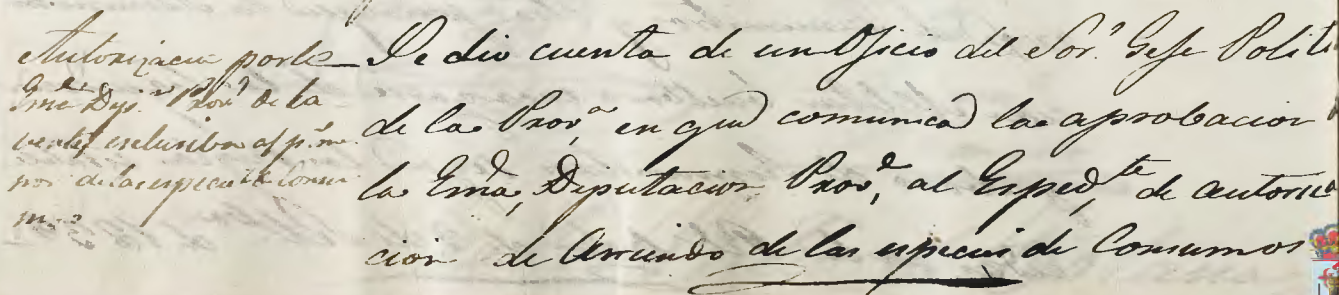 Autorizacion por la
Ema. Dip.n Prov.l de la
venta esclusiva al p.r me
nor de las especies de Consu
mos
Se dio cuenta de un Oficio del Sor. Gefe Politi
de la Prov.a en que comunica la aprobacion
la Ema, Diputacion Prov.l, al Esped.te de autoriza
cion de Arriendo de las especies de Consumos